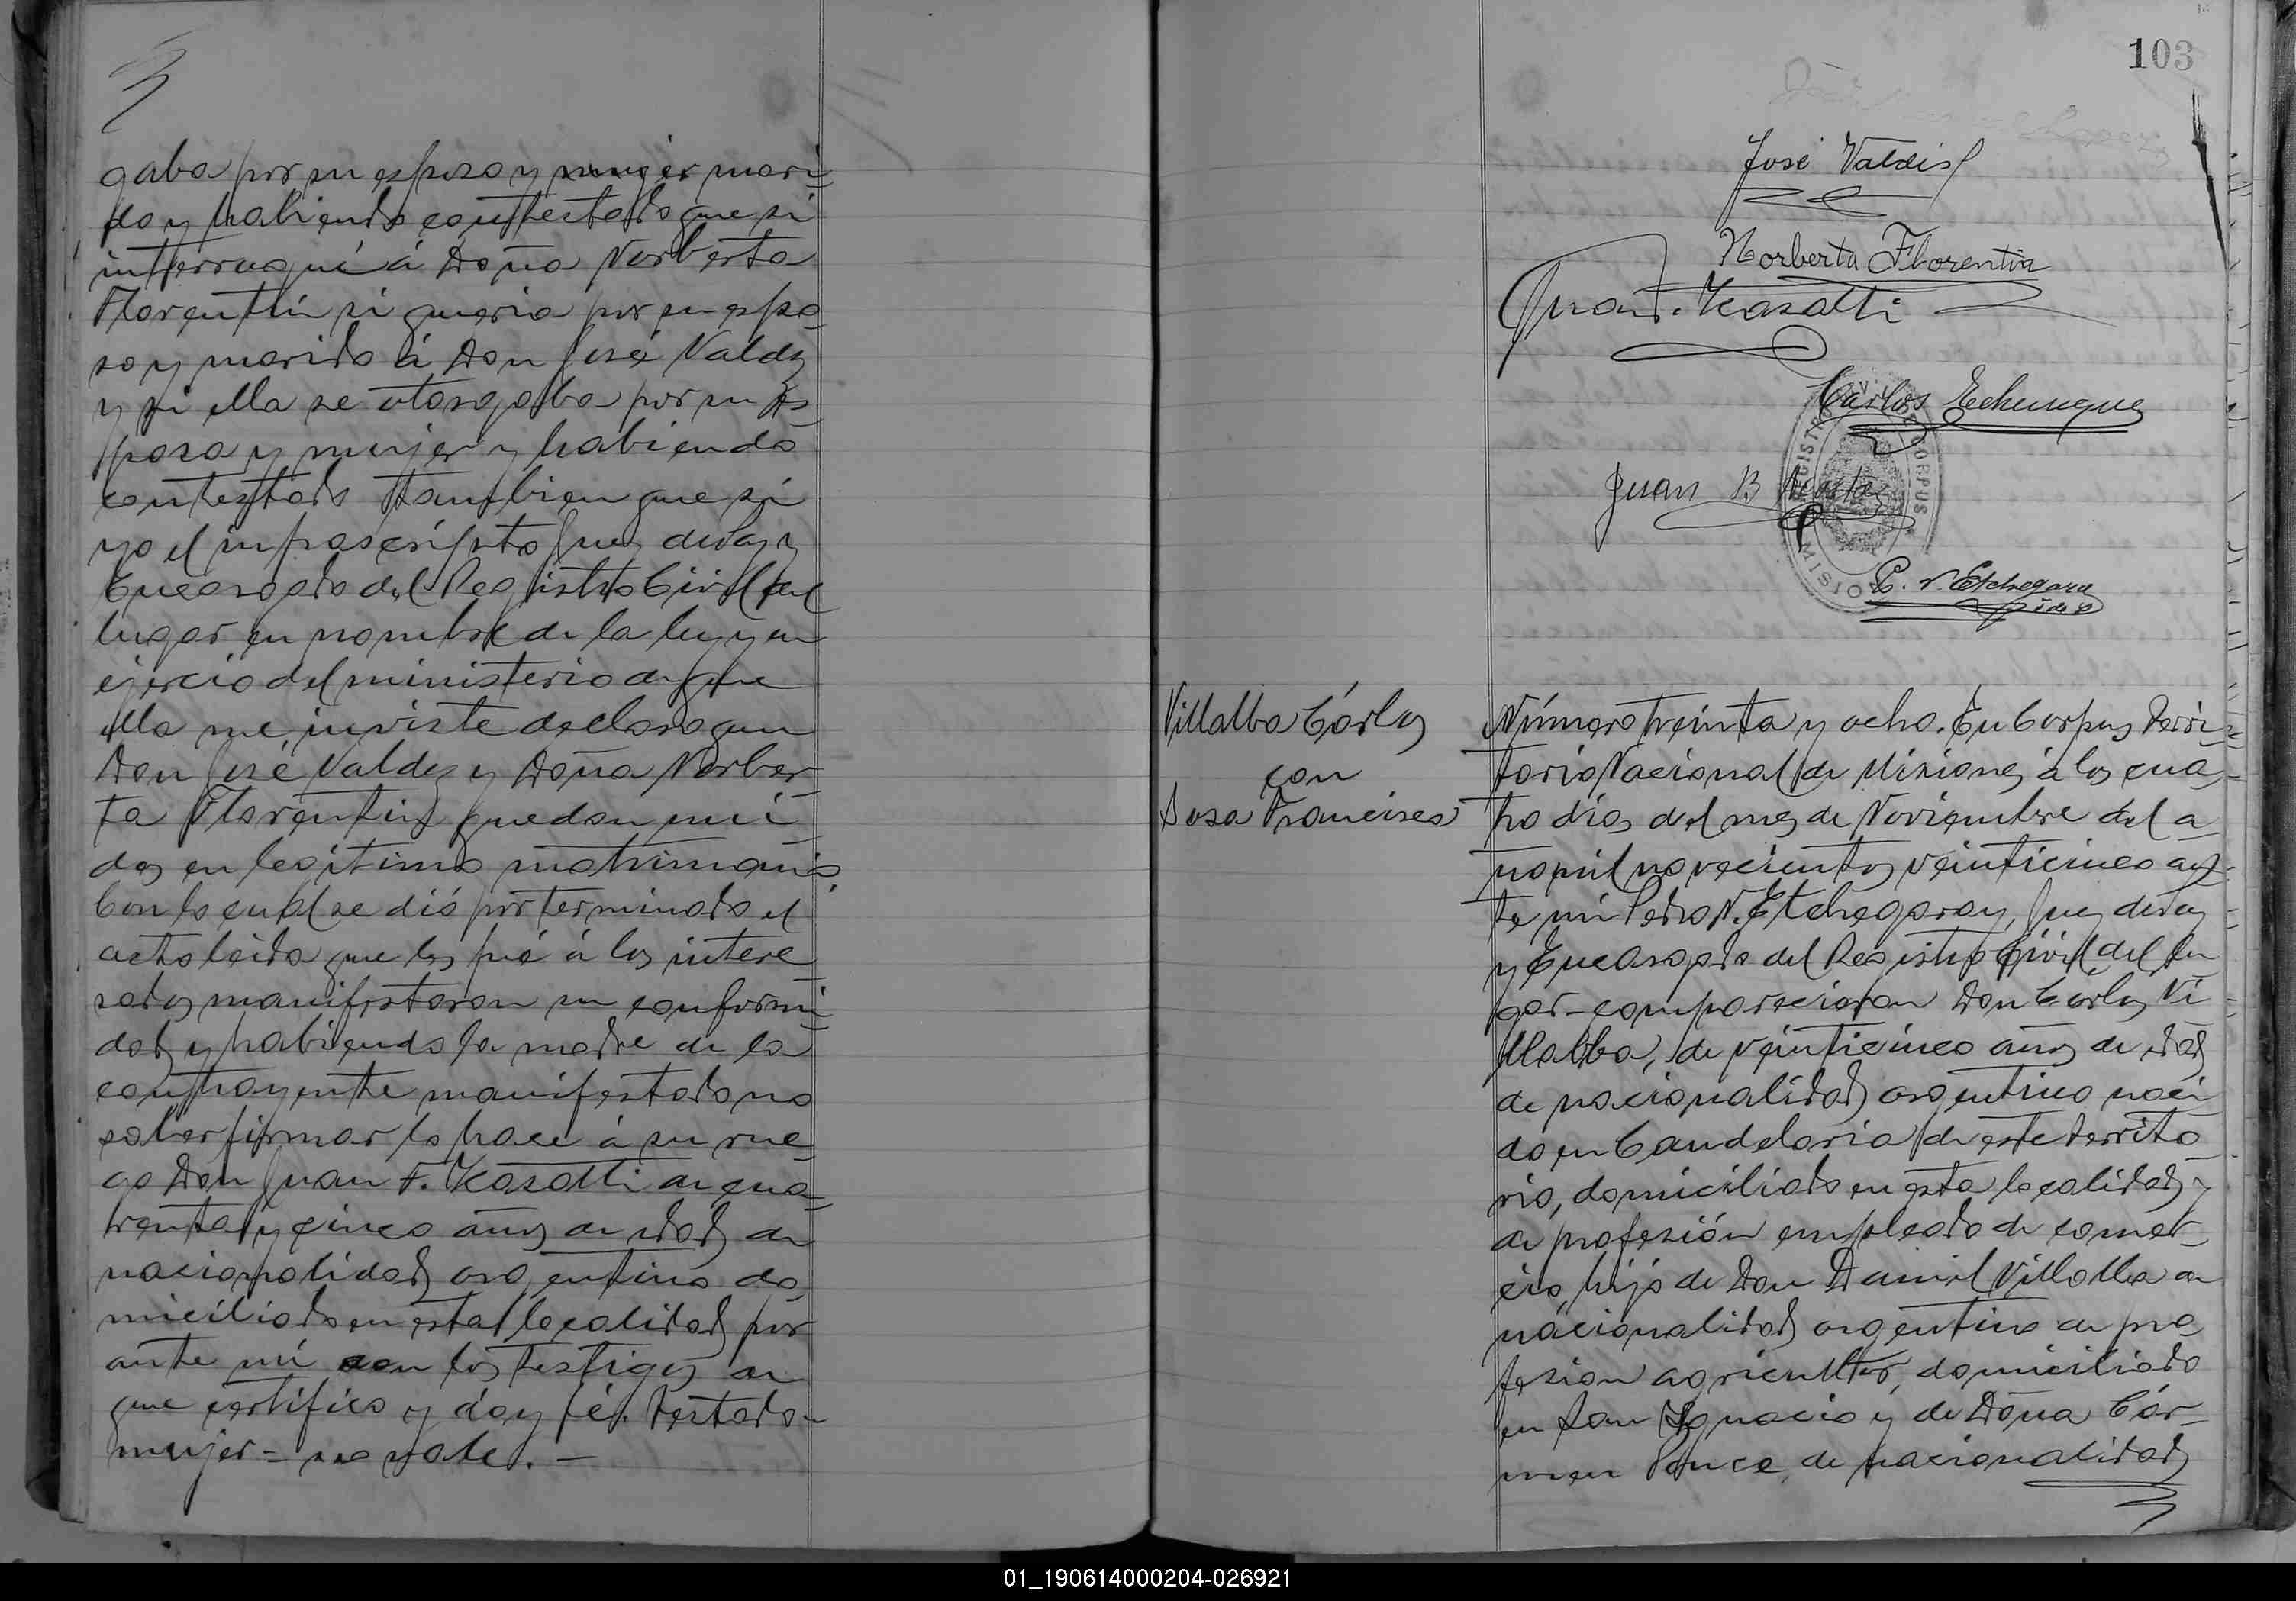 gaba por su esposo y mujer mari-
do y habiendo contestado que si
interrogué á Doña Norberta
Florentín si queria por su espo-
so y marido á Don José Valdez
y si ella se otorgaba por su es-
posa y mujer y habiendo
contestado tambien que si
yo el infrascripto Juez de Paz y
Encargado del Registro Civil del
lugar en nombre de la ley y en
ejercio del ministerio de que
ella me inviste declaro que
Don José Valdez y Doña Norber-
ta Florentin quedan uni-
dos en legítimo matrimonio
Con lo cual se dió por terminado el
acto leida que les fué á los intere
sados manifestaron su conformi-
dad y habiendo la madre de la
contrayente manifestado no
saber firmar lo hace á su rue-
go Don Juan F. Kasatti de cua-
renta y cinco años de edad de
nacionalidad argentino do-
miciliado en esta localidad por
ante mí con los testigos de
que certifico y doy fé. Testado-
mujer = no vale. —
103
José Valdés
Norberta Florentin
Juan F. Kasatti
Carlos Echeneque
Juan B Acosta
REGISTRO CORPUS MISIONES
P. N. Etchegaray
Villalba Cárlos
con
Sosa Francisca
Número treinta y ocho. En Corpus Terri-
torio Nacional de Misiones á los cua-
tro dias del mes de Noviembre del a
ño mil novecientos veinticinco an-
te mi Pedro N. Etchegaray, Juez de Paz
y Encargado del Registro Civil del lu
gar - comparecieron Don Cárlos Vi
llalba, de veinticinco años de edad
de nacionalidad argentino naci
do en Candelaria de este territo
rio, domiciliado en esta localidad y
de profesión empleado de comer-
cio, hijo de Don Daniel Villalba de
nacionalidad argentino de pro
fesion agricultor, domiciliado
en San Ignacio y de Doña Cár-
men Ponce de nacionalidad
01_190614000204-026921